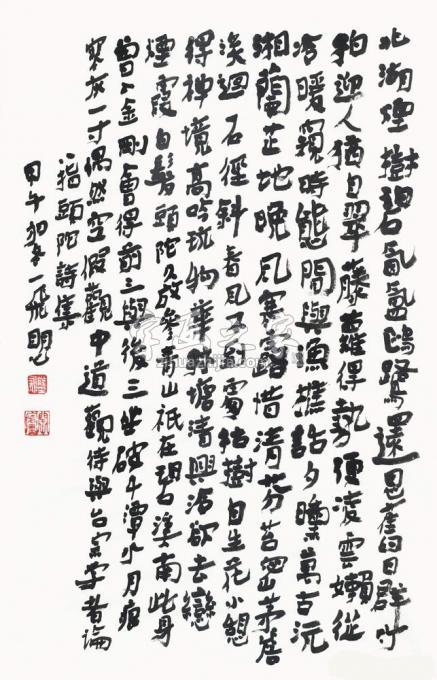 北湖煙樹碧氤氳鷗鷺還思舊日群竹
狗迎人猶自翠藤蘿得勢便凌雲嬾從
冷暖窺時態閒與漁樵話夕曛萬古沅
湘蘭芷地晚風寒露惜清芬苔茅
溪迴石徑斜春風不到處枯樹自生花小憩
得神境高吟玩物華林塘清興洽欲去戀
煙霞白髮頭陀久放參青山祇在碧溪南此身
曾入金剛會得前三與後三坐破千潭水月痕
寒灰一寸偶然空假觀中道觀待與台宗學者論
八指頭陀詩集
甲午初冬一飛